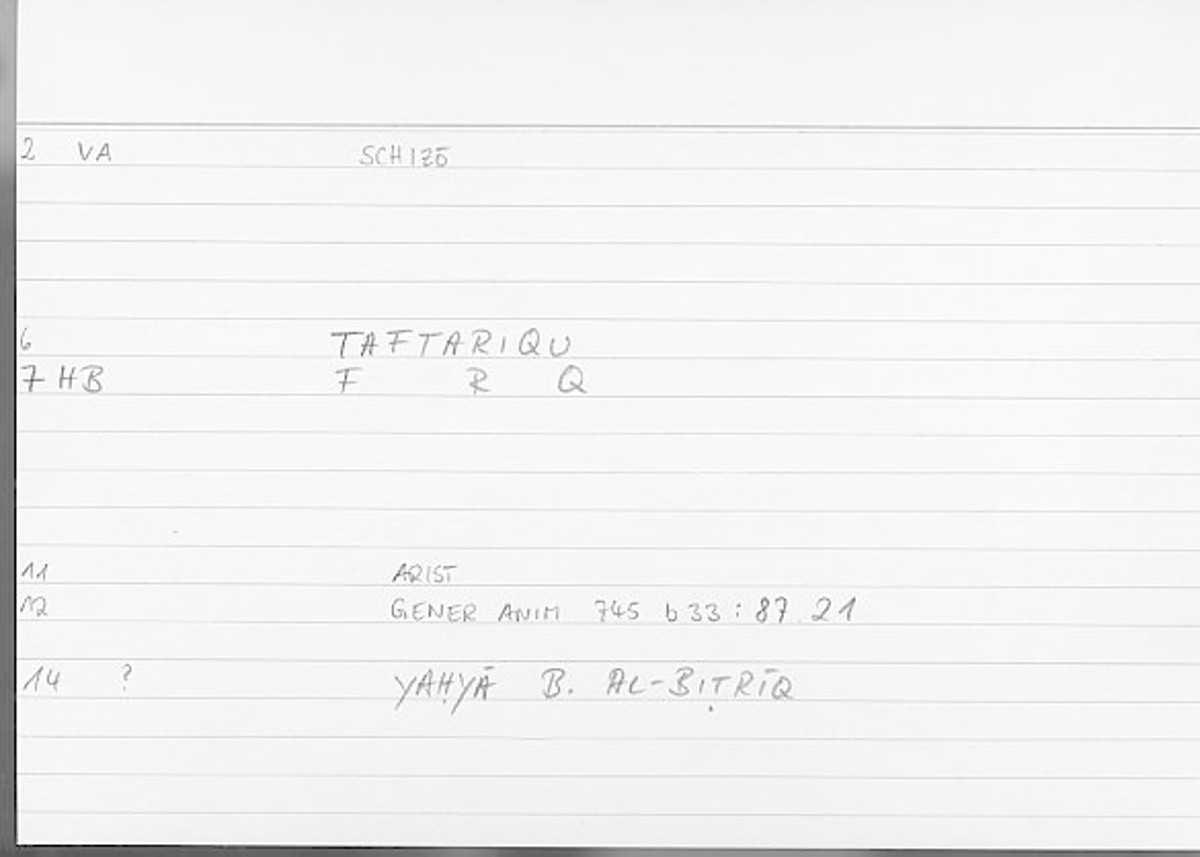 2 VA SCHIZŌ
6 TAFTARIQU
7 HB F R Q
11 ARIST
12 GENER ANIM 745 b 33 : 87.21
14 ? YAḤYĀ B. AL-BIṬRĪQ